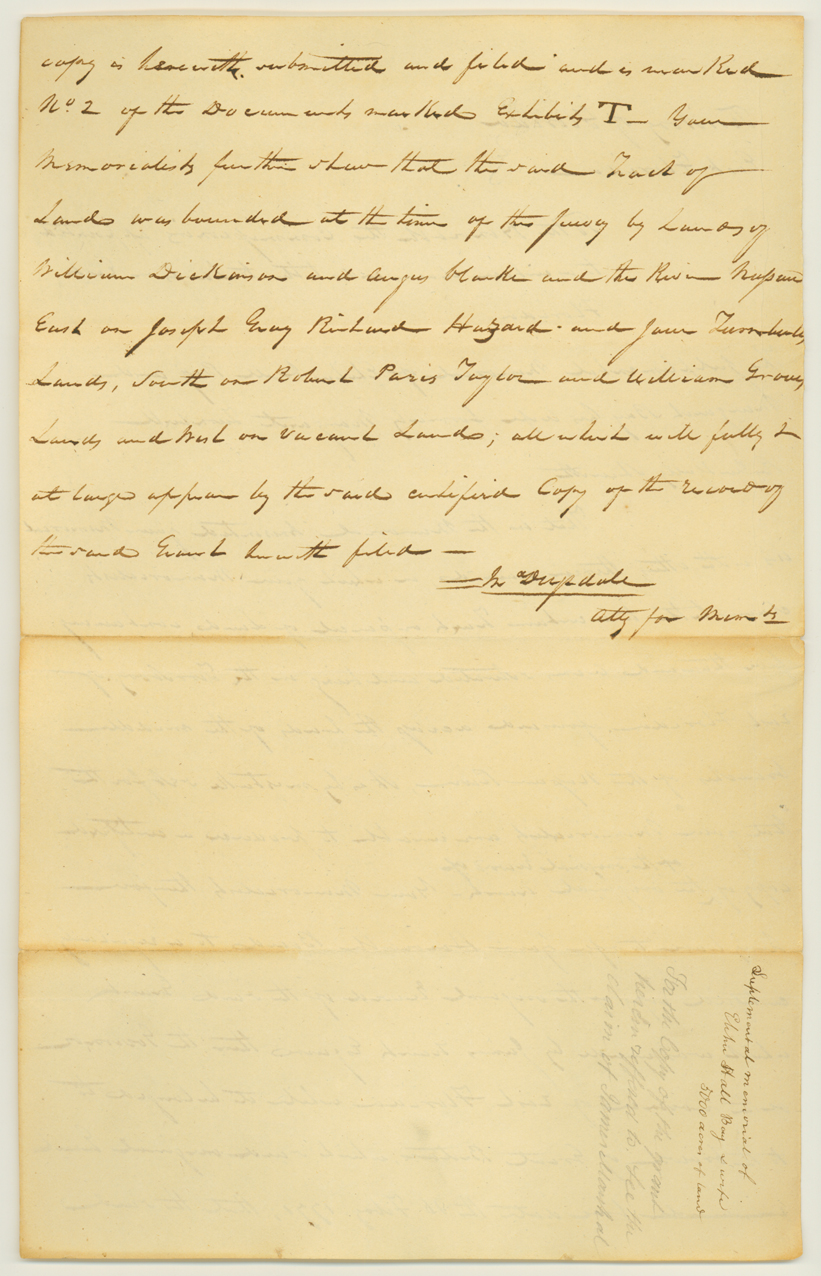 copy is herewith submitted and filed and is marked
No. 2 of the Documents marked Exhibits T — Your
Memorialists further shew that the said Tract of
Lands was bounded at the time of the survey by Lands of
William Dickinson and Angus Clarke and the River
East on Joseph Gray Richard Hazard and Jane Turnbulls
Lands, South on Robert Paris Taylor and William Groves
Lands and West on Vacant Lands; all which will fully &
at large appear by the said certified Copy of the record of
the said Grant herewith filed —
Jno Drysdale
Atty for Memts
Suplemental memorial of
Elihu Hall Bay & wife
5000 acres of land
For the Copy of the grant
herein referred to see the
claim of James